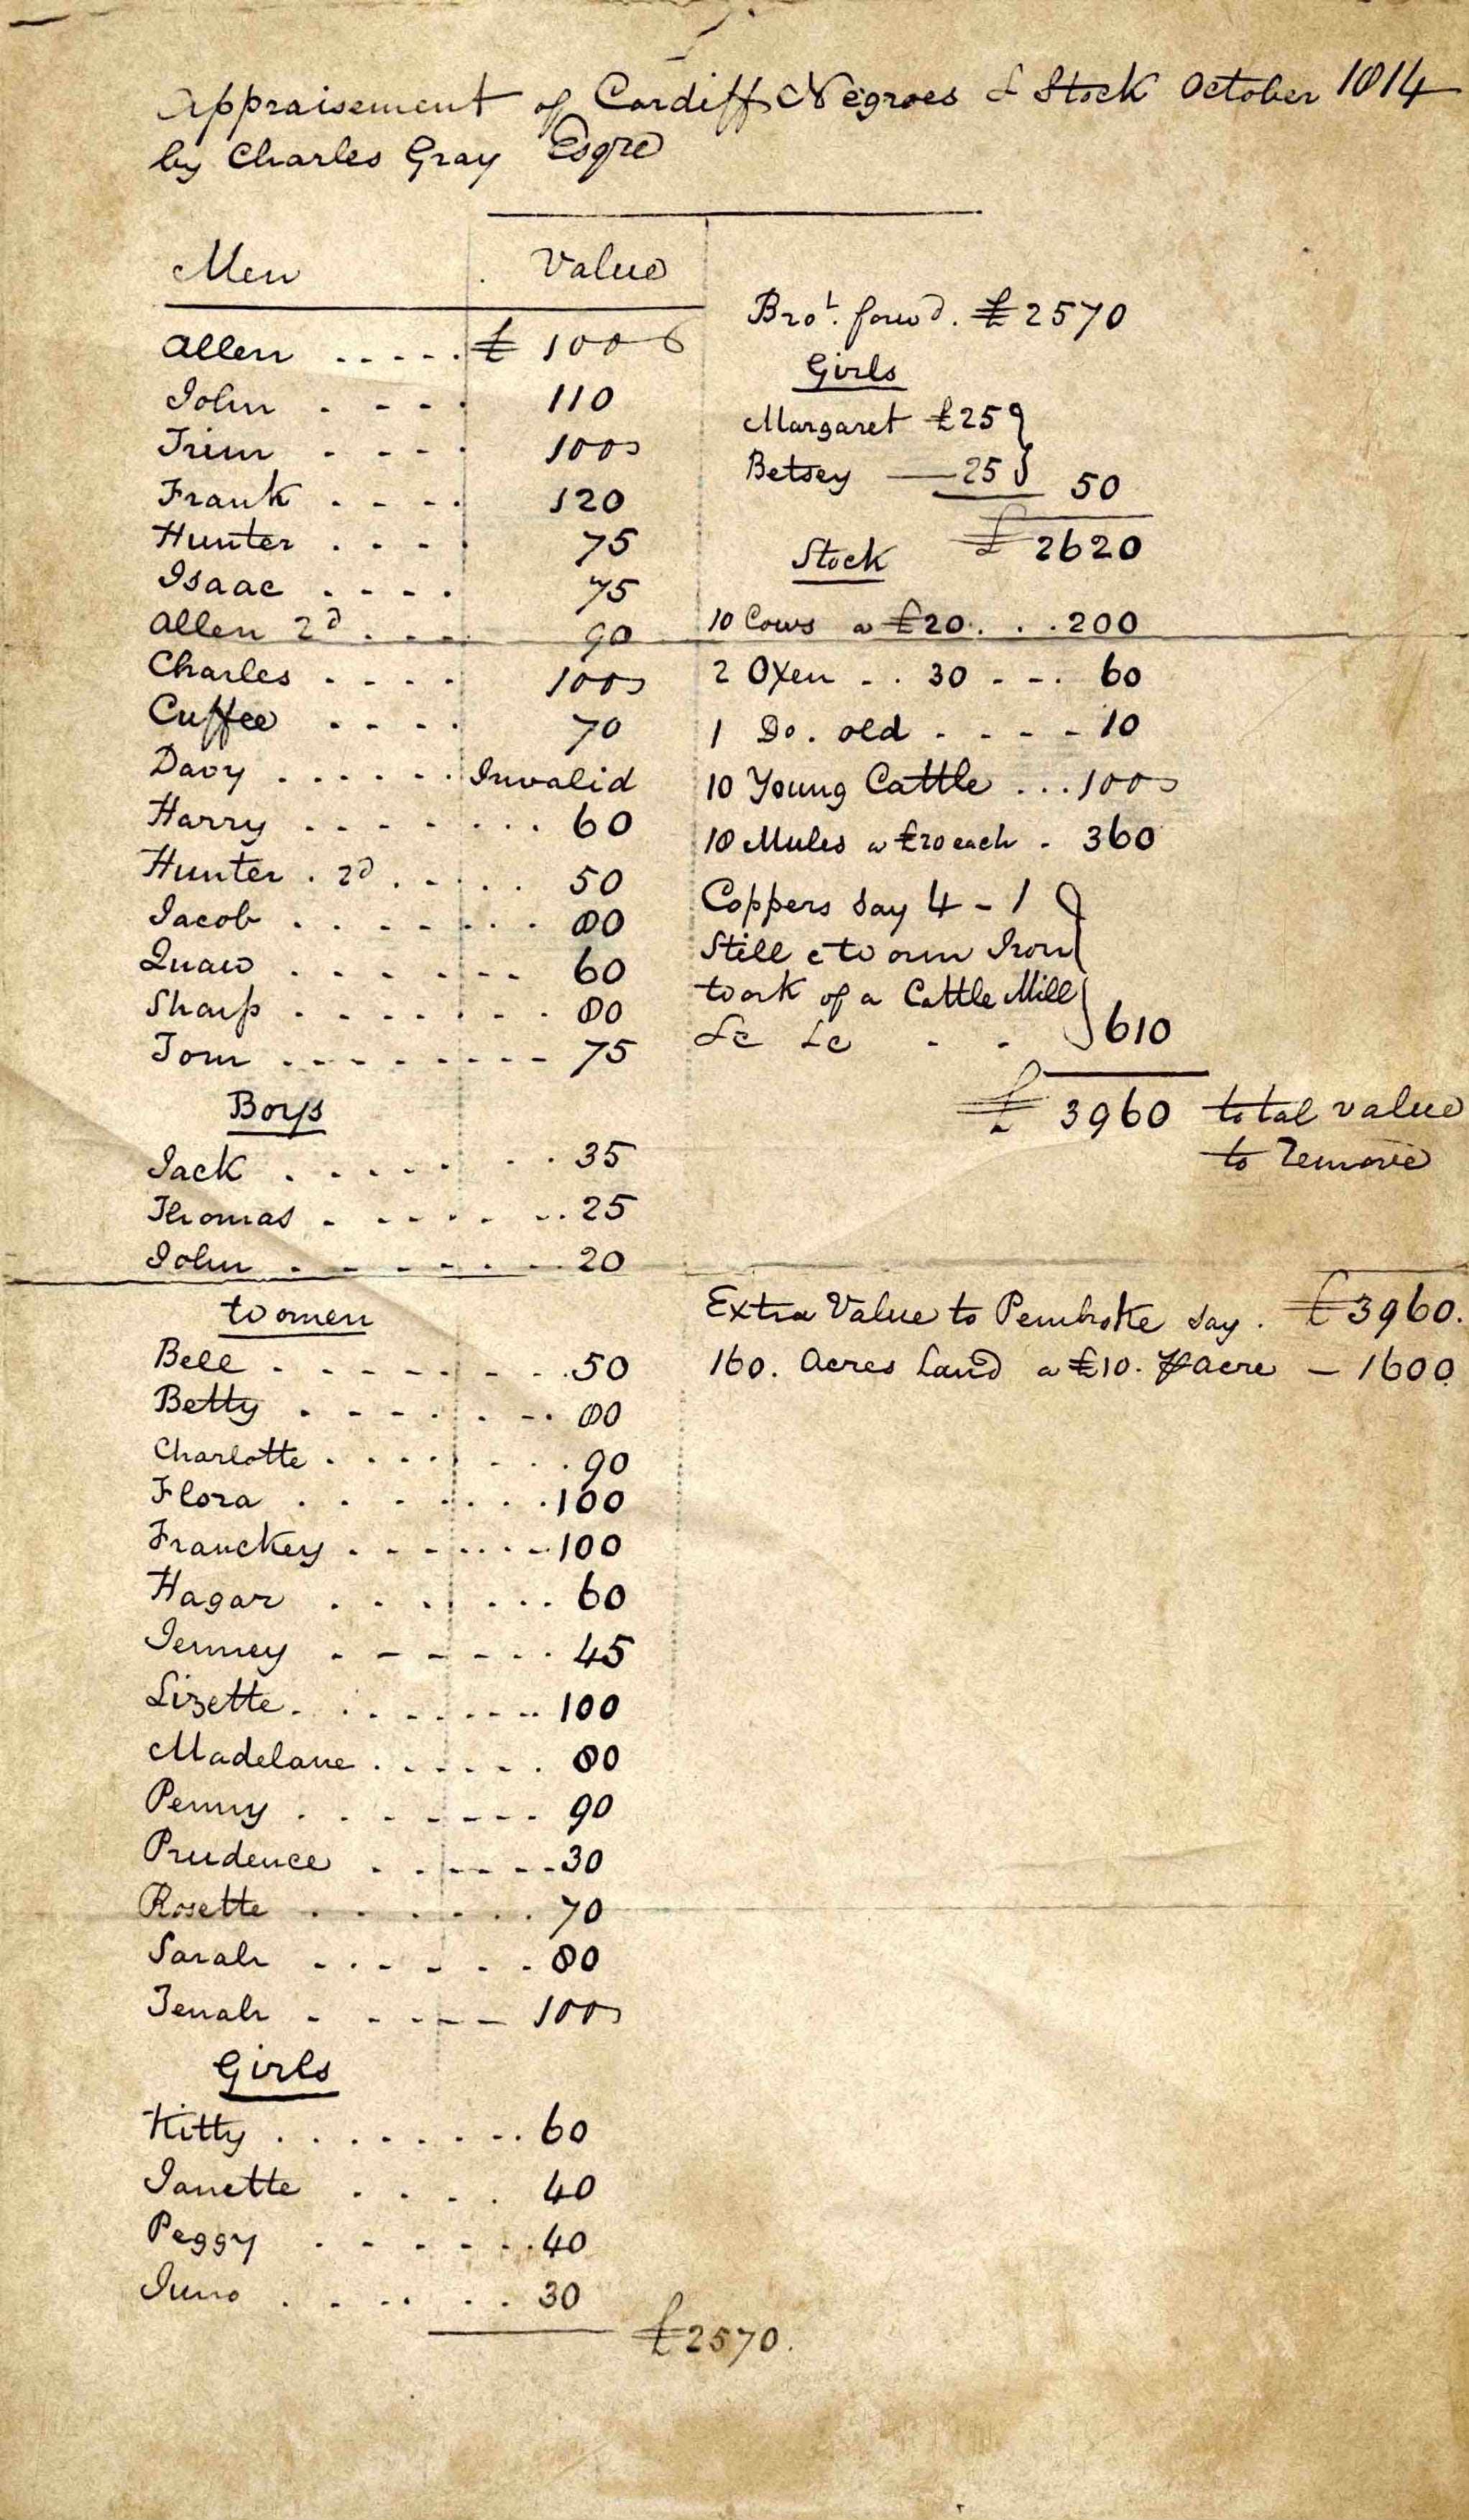 Appraisement of Cardiff Negroes & Stock October 1814
by Charles Gray Esqre
Men Value
Allen ..... £ 100
John .... 110
Trim .... 100
Frank .... 120
Hunter .... 75
Isaac .... 75
Allen 2d .... 90
Charles .... 100
Cuffee .... 70
Davy ...... Invalid
Harry ........ 60
Hunter . 2d ..... 50
Jacob ....... 80
Quaw ....... 60
Sharp ........ 80
Tom ......... 75
Boys
Jack ....... 35
Thomas ....... 25
John ....... 20
Women
Bell ........ 50
Betty ........ 80
Charlotte ........ 90
Flora ........ 100
Franckey ........ 100
Hagar ........ 60
Jenney ....... 45
Lizette ......... 100
Madelane ...... 80
Penny ........ 90
Prudence ...... 30
Rosette ...... 70
Sarah ...... 80
Tenah ..... 100
Girls
Kitty ........ 60
Janette .... 40
Peggy ...... 40
Juno ...... 30
£2570.
Brot. forwd. £2570
Girls
Margaret £25
Betsey — 25 50
£ 2620
Stock
10 Cows a £20. . . 200
2 Oxen .. 30 --. 60
1 Do. old .... 10
10 Young Cattle ... 100
18 Mules a £20 each . 360
Coppers say 4 - 1
Still & Worm Iron
Work of a Cattle Mill
&c &c . . 610
£ 3960 total value
to remove
Extra Value to Pembroke say . £3960.
160. Acres Land a £10. ⅌ Acre — 1600